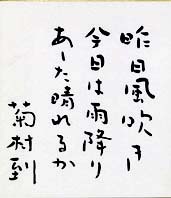 昨日風吹き
今日は雨降り
あした晴れるか
菊村到